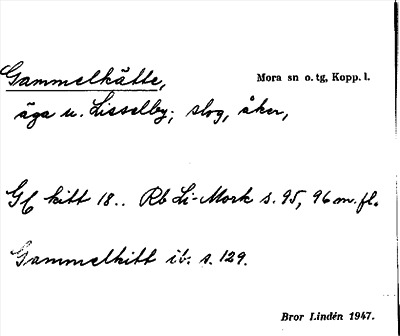 Gammelkätte, Mora sn o. tg, Kopp. l.
äga u. Lisselby; slog, åker,
Gl kitt 18.. Rb Li-Mork s. 95, 96 m. fl.
Gammelkitt ib. s. 129.
Bror Lindén 1947.